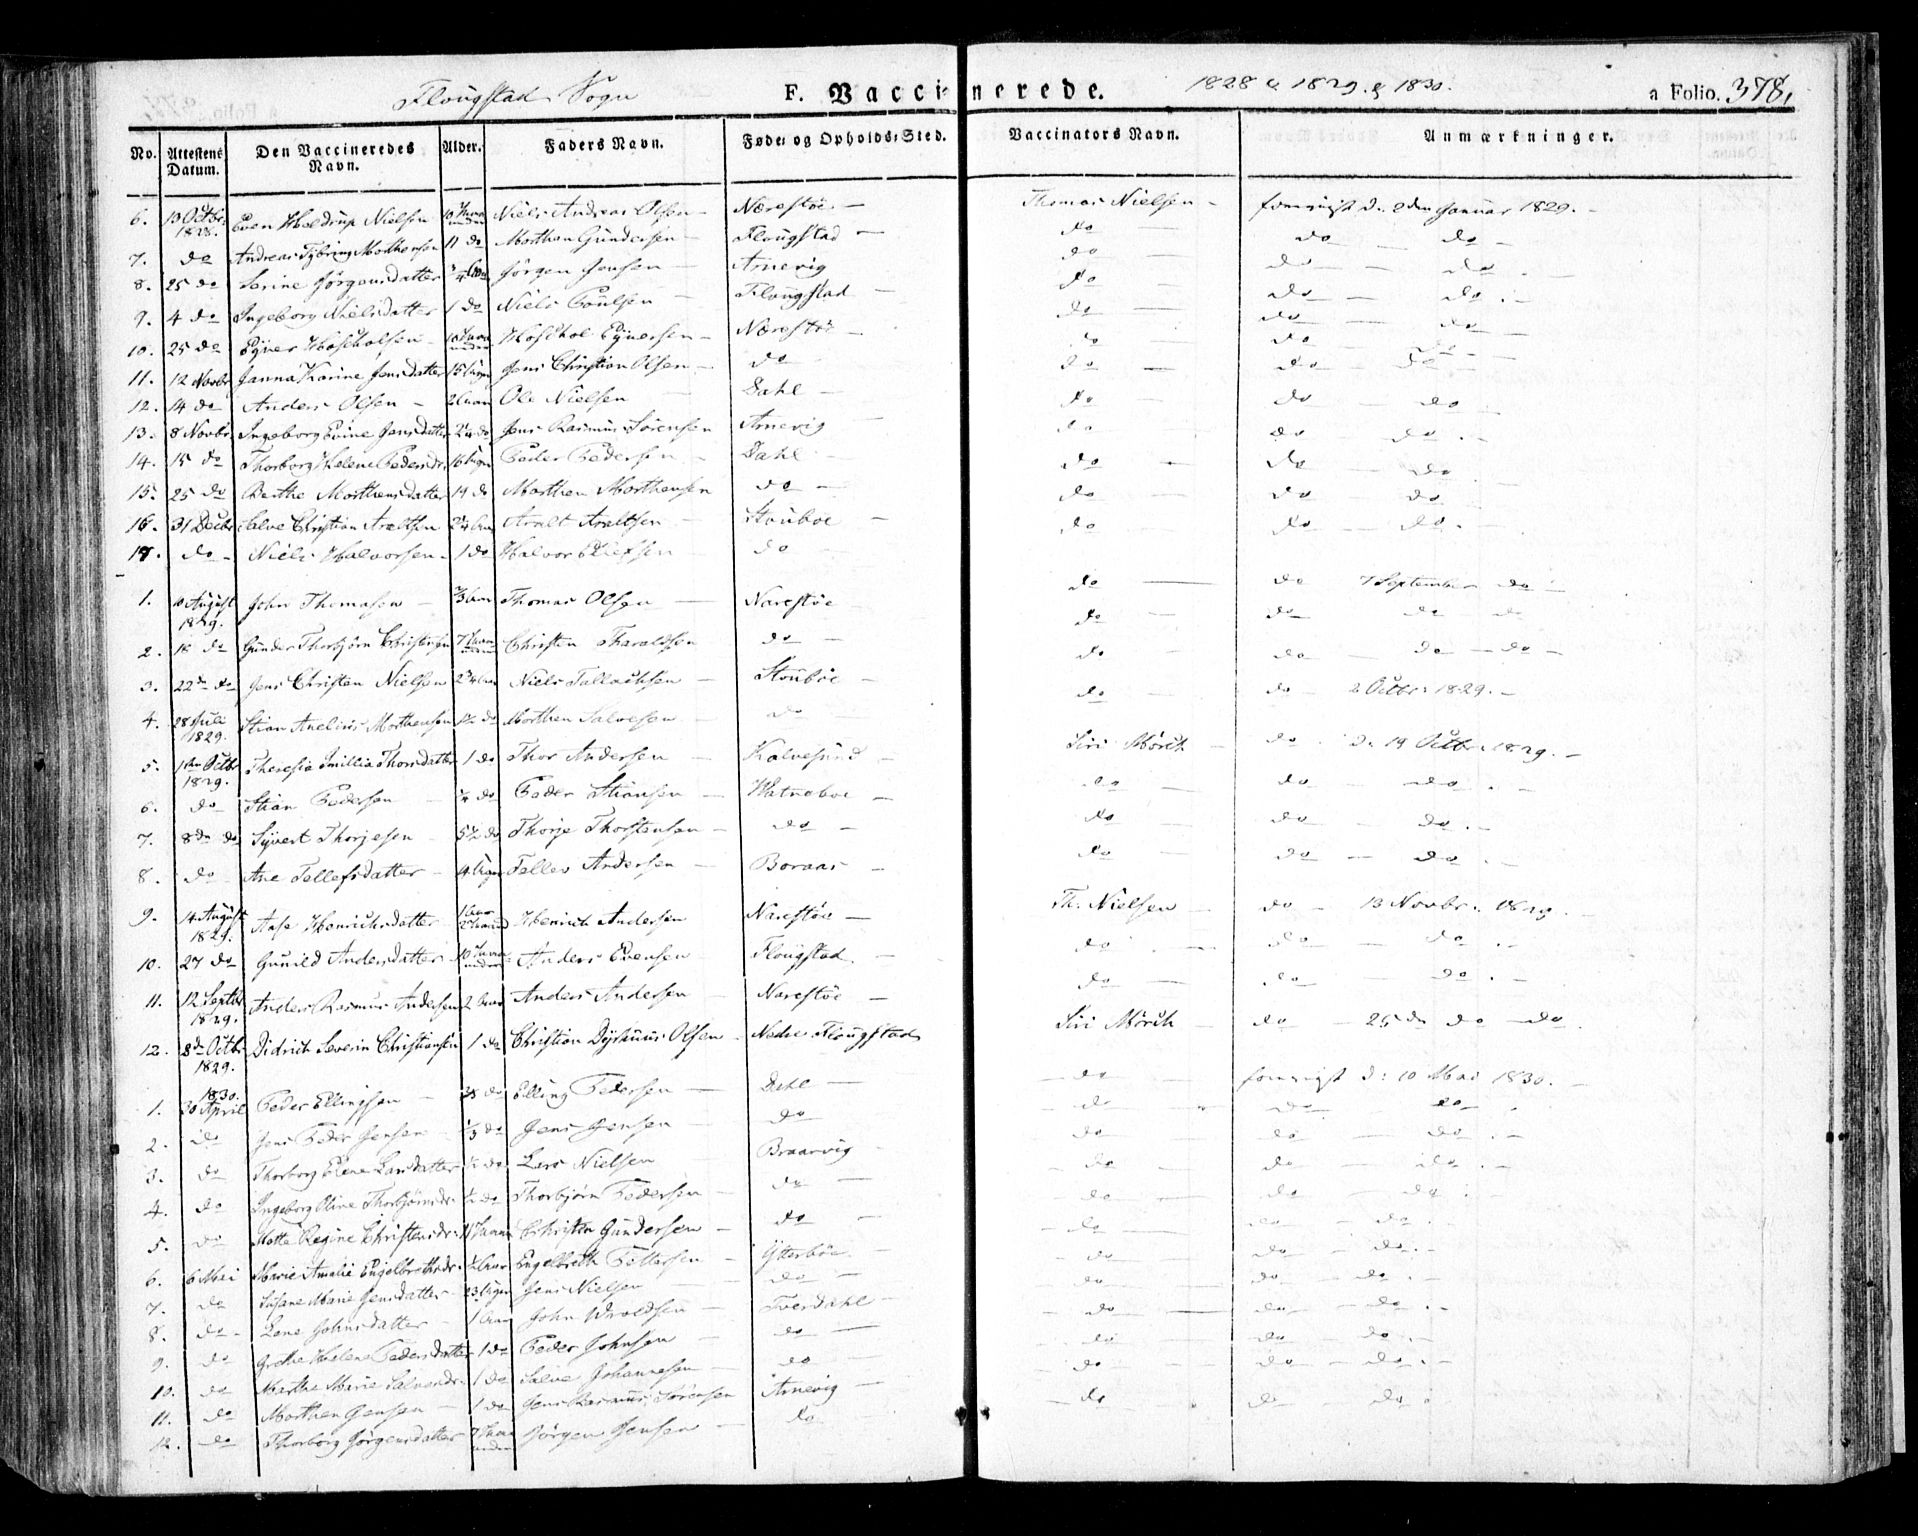 Flougstad Sogn F. Vaccinerede. 1828 & 1829 & 1830. a Folio. 378.
No. Attestens Datum. Den Vaccineredes Navn. Alder. Faders Navn. Føde- og Opholds-Sted. Vaccinators Navn. Anmærkninger.
6. 13 Octbr 1828. Even Heldrup Nielsen 10 Niels Andreas Olsen Nærestöe Thomas Nielsen d: 2den Januar 1829.
7. do Andreas Morthensen 11 do Morthen Gundersen Flougstad do do do
8. 25 do Serine Jörgensdatter 3/4 Jörgen Jensen Arnevig do do do
9. 4 do Ingeborg Nielsdatter 1 do Niels Poulsen Flougstad do do do
10. 25 do Ejner 10 Ejnersen Nærestöe do do do
11. 12 Novbr Janna Karine Jensdatter 15 Uger Jens Christian Olsen do do do do
12. 14 do Anders Olsen 2 Aar Ole Nielsen Dahl do do do
13. 8 Novbr Ingeborg Jensdatter 2 1/4 do Jens Rasmus Sörensen Arnevig do do do
14. 15 do Thorborg Helene Pedersdr. 16 Uger Peder Pedersen Dahl do do do
15. 25 do Berthe Morthensdatter 14 do Morthen Morthensen do do do do
16. 31 Decbr Salve Christian Araltsen 2 1/4 Aar Aralt Araltsen Stouböe do do do
17. do Niels Halvorsen 1 do Halvor Stouböe do do do
1. 10 August 1829. John Thomasen 2/3 Aar Thomas Olsen Narestöe do do 7 September do
2. 18 do Gunder Thorbjörn Christensen 7 Christen Tharaldsen do do do do do
3. 22de do Jens Christen Nielsen 2 3/4 Aar Niels Tallachsen Stouböe do do do do
4. 28 Juli 1829. Stian Anelius Morthensen 1/2 do Morthen Salvesen do do do 2 Octbr: 1829.
5. 1ste Octbr 1829. Theresia Emillia Thorsdatter 1 do Thor Andersen Kalvesund Siri Mörch do d: 19 Octbr. 1829.
6. do Stian Pedersen 1/4 do Peder Stiansen Watneboe do do do
7. 8de do Syvert Thorjesen 5 1/2 do Thorje Thorstensen do do do do
8. do Ane Tellefsdatter 4 Uger Tellev Andersen Boraas do do do
9. 14 August 1829. Aase Henrichsdatter 1 Aar Henrich Andersen Narestöe Th: Nielsen do 13 Novbr. 1829.
10. 27 do Gunild Andersdatter 10 Anders Evensen Flougstad do do do
11. 12 Septbr 1829. Anders Rasmus Andersen 2 Aar Anders Andersen Narestöe do do do
12. 8de Octbr 1829. Didrich Severin Christiansen 1 do Christian Olsen Nedre Flougstad Siri Mörch do 25de do do
1. 1830. 30 April Peder Ellingsen do Elling Pedersen Dahl do d: 10 Mai 1830.
2. do Jens Peder Jensen 1/3 do Jens Jensen do do do do
3. do Thorborg Elene Larsdatter 1/2 do Lars Nielsen Braarvig do do do
4. do Ingeborg Oline Thorbjörnsdr. 1/2 do Thorbjörn Pedersen do do do do
5. do Regine Christensdr. 11 Christen Gundersen do do do do
6. 6 Mai Marie Amalie Engelbrethsdr. 1/2 Aar Engelbreth Pettersen Ytterböe do do do
7. do Susane Marie Jensdatter 23 Uger Jens Nielsen do do do do
8. do Lene Johnsdatter 1 Aar John Wroldsen Tverdahl do do do
9. do Grethe Helene Pedersdatter 1 do Peder Johnsen do do do do
10. do Marthe Marie Salvesdr. 1 do Salve Johannesen do do do do
11. do Morthen Jensen 1 do Jens Rasmus Sörensen Arnevig do do do
12. do Thorborg Jörgensdatter 7 Jörgen Jensen do do do do